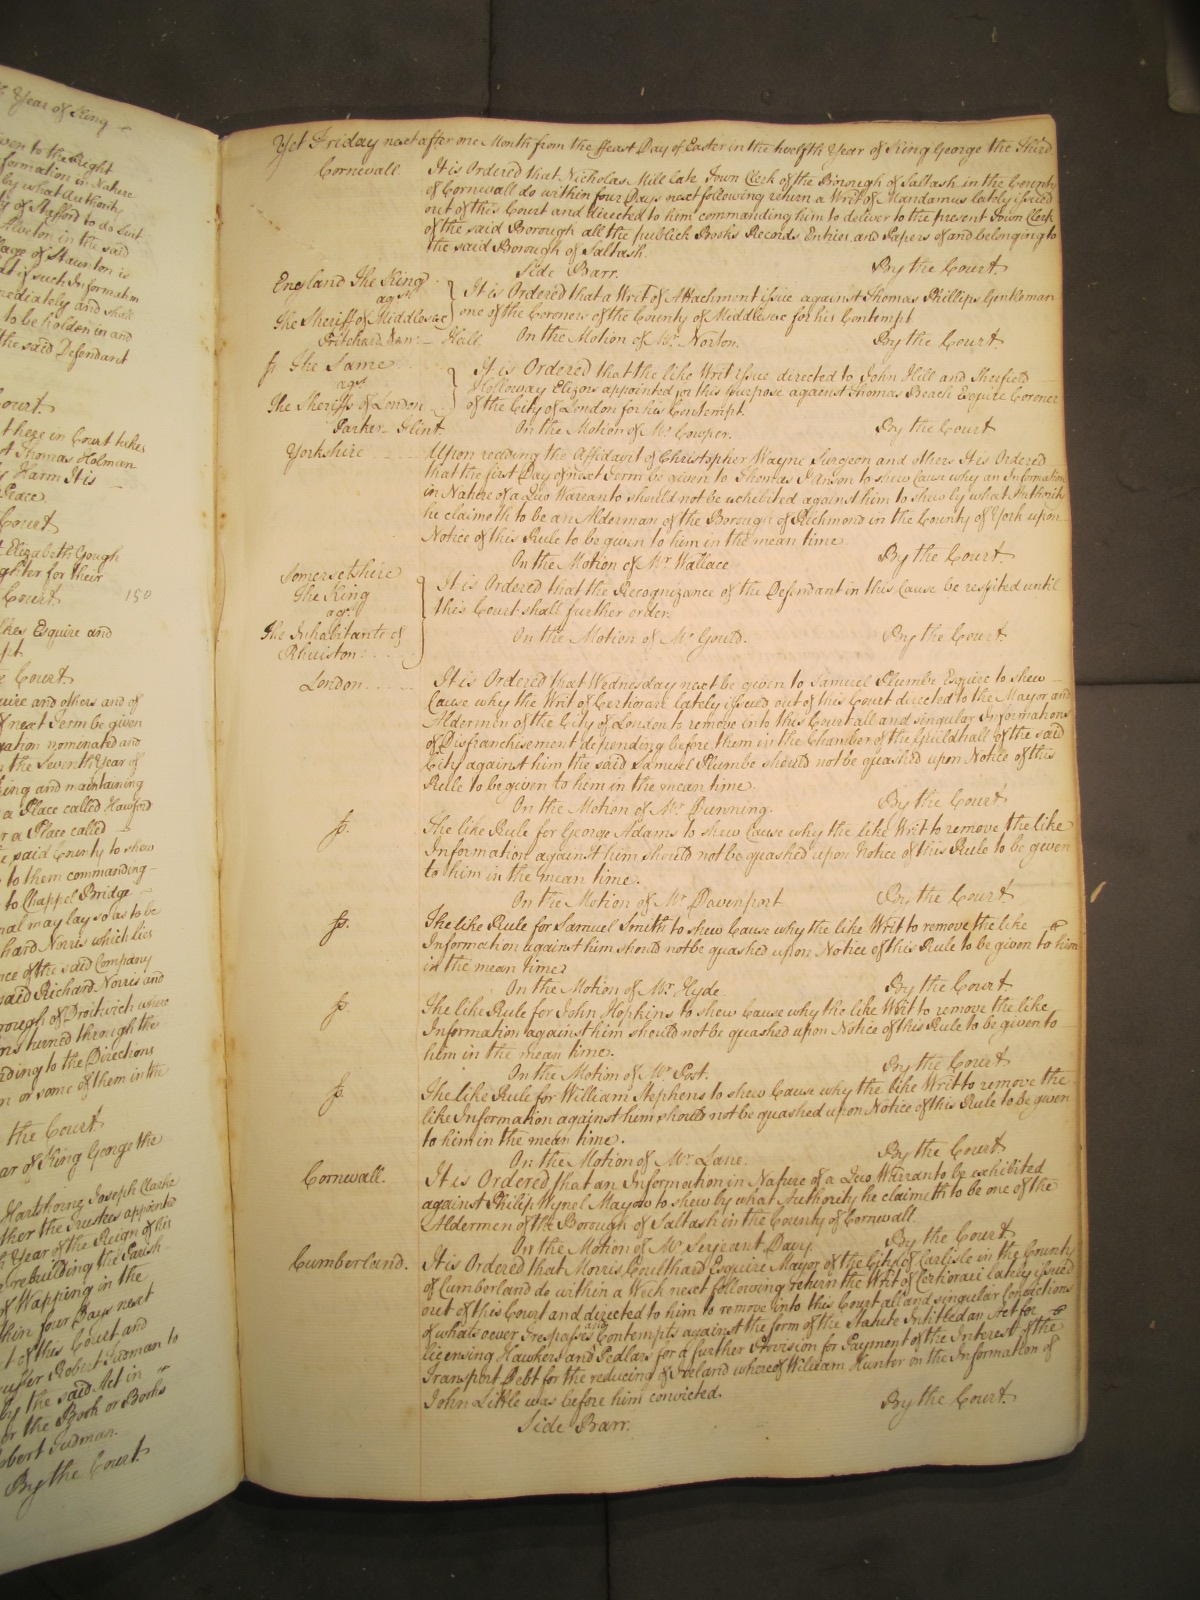 Year of King
given to the Right
formation in Nature
by what Authority
of Stafford to do Suit
Alveton in the said
Staunton is
if such Information
mediately and shall
to be holden in and
the said Defendant
Court.
t here in Court takes
Thomas Holman
Harm It is
Peace
Court
Elizabeth Gough
ghter for their
Court 150
lkes Esquire and
Court
quire and others and of
next Term be given
gation nominated and
the Seventh Year of
king and maintaining
a Place called Hawford
or a Place called
said County to shew
to them commanding
to Chappel Bridge
nal may lay so as to be
hard Norris which lies
nce of the said Company
said Richard Norris and
orough of Droitwich where
ns turned through the
rding to the Directions
n or some of them in the
the Court
ar of King George the
Joseph Clarke
ther the Trustees appointed
h Year of the Reign of his
rebuilding the Parish
of Wapping in the
thin four Days next
t of this Court and
Robert Sudman to
by the said Act in
or the Book or Books
obert Sudman.
By the Court.
Yet Friday next after one Month from the ffeast Day of Easter in the twelfth Year of King George the Third
Cornwall. It is Ordered that Nicholas Mill late Town Clerk of the Borough of Saltash in the County
of Cornwall do within four Days next following return a Writ of Mandamus lately issued
out of this Court and directed to him commanding him to deliver to the present Town Clerk
of the said Borough all the publick Books Records Entries and Papers of and belonging to
the said Borough of Saltash.
Side Barr. By the Court
England The King
agst
The Sheriff of Middlesex
It is Ordered that a Writ of Attachment issue against Thomas Phillips Gentleman
one of the Coroners of the County of Middlesex for his Contempt
Pritchard Hall. On the Motion of Mr. Norton. By the Court.
fs The Same
agst
The Sheriffs of London
It is Ordered that the like Writ issue directed to John Hill and Sheffield
Holloway Elizors appointed for this purpose against Thomas Beach Esquire Coroner
of the City of London for his Contempt.
Parker Flint. On the Motion of Mr Cowper. By the Court
Yorkshire Upon reading the Affidavit of Christopher Wayne Surgeon and others It is Ordered
that the first Day of next Term be given to Thomas I'anson to shew Cause why an Information
in Nature of a Quo Warranto should not be exhibited against him to shew by what Authority
he claimeth to be an Alderman of the Borough of Richmond in the County of York upon
Notice of this Rule to be given to him in the mean time
On the Motion of Mr Wallace By the Court.
Somersetshire
The King
agst
The Inhabitants of
Rhuiston
It is Ordered that the Recognizance of the Defendant in this Cause be respited until
this Court shall further order.
On the Motion of Mr Gould. By the Court.
London It is Ordered that Wednesday next be given to Samuel Plumbe Esquire to shew
Cause why the Writ of Certiorari lately issued out of this Court directed to the Mayor and
Aldermen of the City of London to remove into this Court all and singular Informations
of Disfranchisement depending before them in the Chamber of the Guildhall of the said
City against him the said Samuel Plumbe should not be quashed upon Notice of this
Rule to be given to him in the mean time.
On the Motion of Mr Dunning. By the Court
fs. The like Rule for George Adams to shew Cause why the like Writ to remove the like
Information against him should not be quashed upon Notice of this Rule to be given
to him in the mean time.
On the Motion of Mr Davenport By the Court.
fs. The like Rule for Samuel Smith to shew Cause why the like Writ to remove the like
Information against him should not be quashed upon Notice of this Rule to be given to him
in the mean time
On the Motion of Mr Hyde By the Court.
fs. The like Rule for John Hopkins to shew Cause why the like Writ to remove the like
Information against him should not be quashed upon Notice of this Rule to be given to
him in the mean time.
On the Motion of Mr Post. By the Court
fs. The like Rule for William Stephens to shew Cause why the like Writ to remove the
like Information against him should not be quashed upon Notice of this Rule to be given
to him in the mean time.
On the Motion of Mr Lane. By the Court
Cornwall. It is Ordered that an Information in Nature of a Quo Warranto be exhibited
against Philip Wynol Mayow to shew by what Authority he claimeth to be one of the
Aldermen of the Borough of Saltash in the County of Cornwall.
On the Motion of Mr Serjeant Davy. By the Court
Cumberland. It is Ordered that Morris Coulthard Esquire Mayor of the City of Carlisle in the County
of Cumberland do within a Week next following return the Writ of Certiorari lately issued
out of this Court and directed to him to remove into this Court all and singular Convictions
of whatsoever Trespasses and Contempts against the form of the Statute Intitled an Act for
licensing Hawkers and Pedlars for a further Provision for Payment of the Interest of the
Transport Debt for the reducing of Ireland whereof William Hunter on the Information of
John Little was before him convicted.
Side Barr. By the Court.